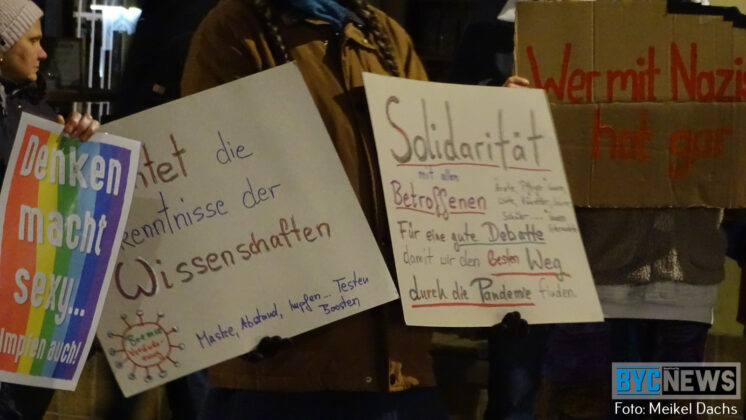 Denken
macht
sexy...
Impfen auch!
tet die
kenntnisse der
Wissenschaften
Maske, Abstand, impfen... Testen
Boosten
Solidarität
mit allen
Betroffenen
Für eine gute Debatte
damit wir den Besten Weg
durch die Pandemie finden.
Wer mit Nazis
hat gar
BYC NEWS
Foto: Meikel Dachs